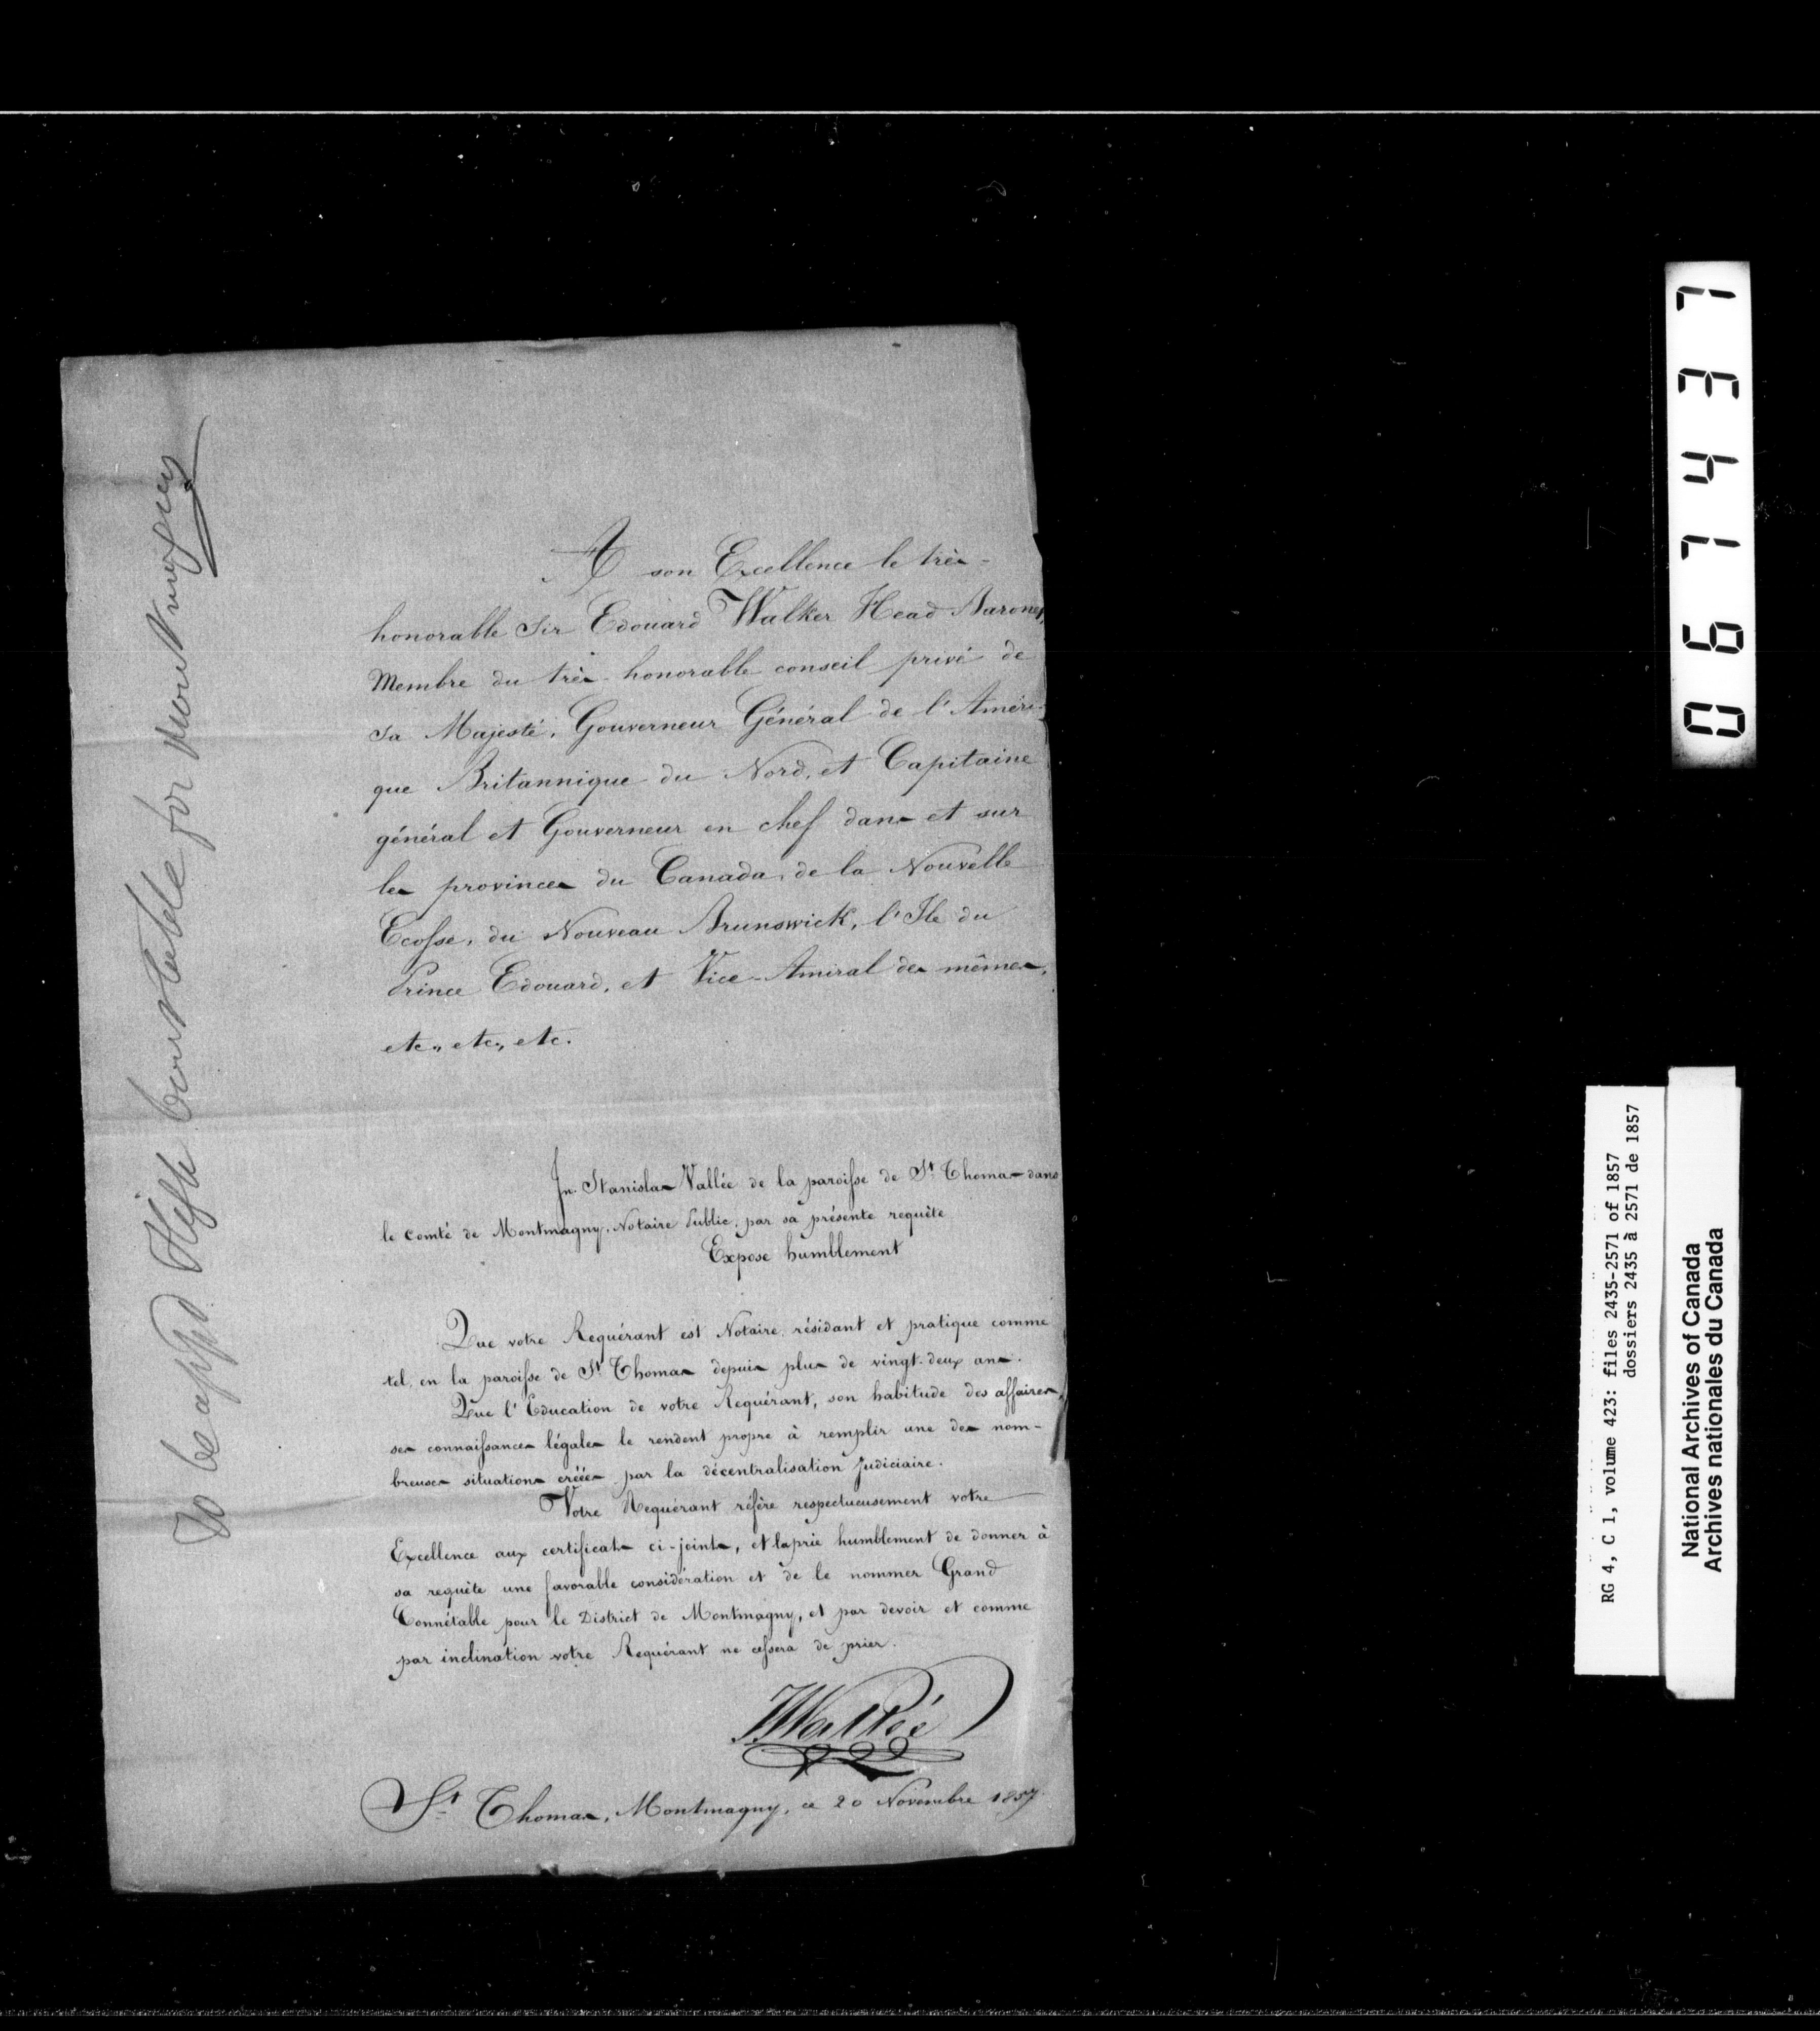 A son Excellence le très-
honorable Sir Edouard Walker Head Baronet,
Membre du très-honorable conseil privé de
sa Majesté, Gouverneur Général de l'Améri-
que Britannique du Nord, et Capitaine
général et Gouverneur en chef dans et sur
les provinces du Canada, de la Nouvelle
Ecosse, du Nouveau Brunswick, l'Ile du
Prince Edouard, et Vice-Amiral des mêmes,
etc., etc., etc.
Jn. Stanislas Vallée de la paroisse de St Thomas dans
le comté de Montmagny, Notaire Public, par sa présente requête
Expose humblement
Que votre Requérant est Notaire, résidant et pratique comme
tel, en la paroisse de St Thomas depuis plus de vingt-deux ans.
Que l'Education de votre Requérant, son habitude des affaires,
ses connaissances légales le rendent propre à remplir une des nom-
breuses situations créées par la décentralisation Judiciaire.
Votre Requérant réfère respectueusement votre
Excellence aux certificats ci-joints, et la prie humblement de donner à
sa requête une favorable considération et de le nommer Grand
Connétable pour le District de Montmagny, et par devoir et comme
par inclination votre Requérant ne cessera de prier.
JSVallée
St Thomas, Montmagny, ce 20 Novembre 1857
To be appd High Constable for Montmagny
067437
RG 4, C 1, volume 423: files 2435-2571 of 1857
dossiers 2435 à 2571 de 1857
National Archives of Canada
Archives nationales du Canada